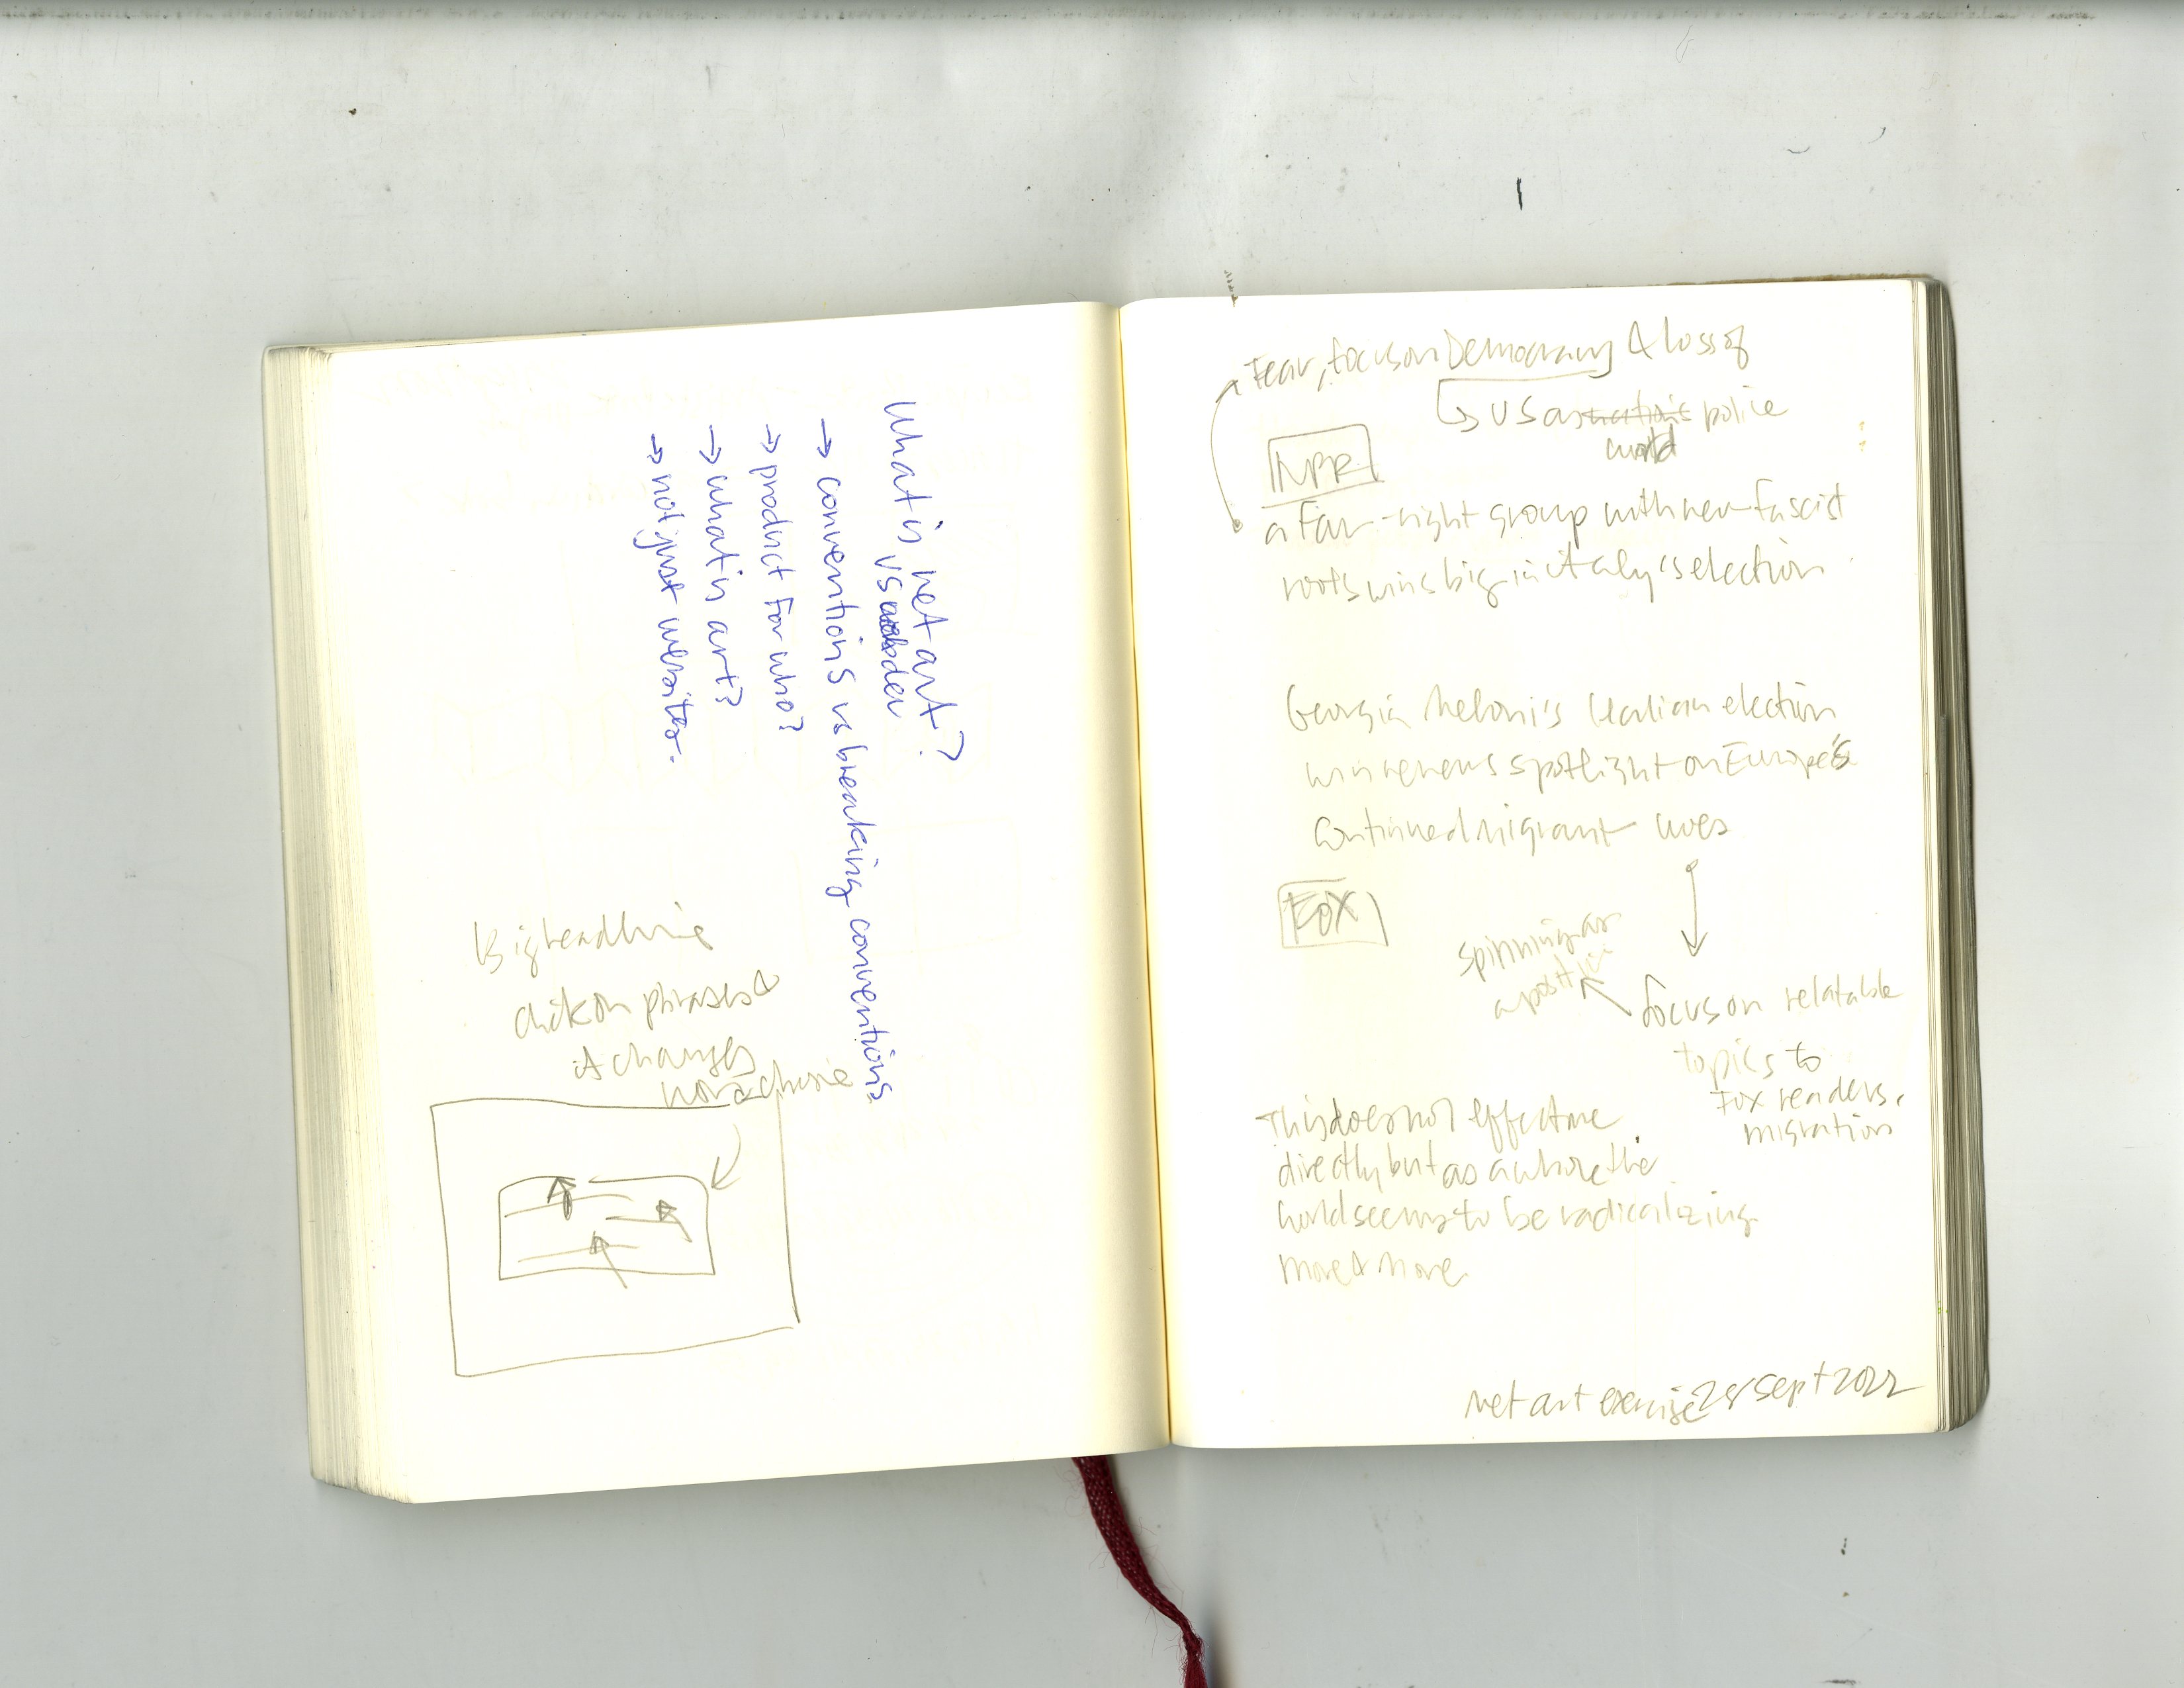 What is net art?
vs webdev
→ conventions vs breaking conventions
→ product for who?
→ what is art?
→ not just websites.
Big headline
click on phrases &
it changes
Fear, focus on Democracy & loss of
↳ US as nation's police
world
NPR
a far-right group with neo-fascist
roots wins big in Italy's election
Georgia Meloni's Italian election
win renews spotlight on Europe's
continued migrant woes
FOX
spinning as
a positive
focus on relatable
topics to
Fox readers,
migration
This does not effect me
directly but as a whole the
world seems to be radicalizing
more & more
net art exercise 28 Sept 2022